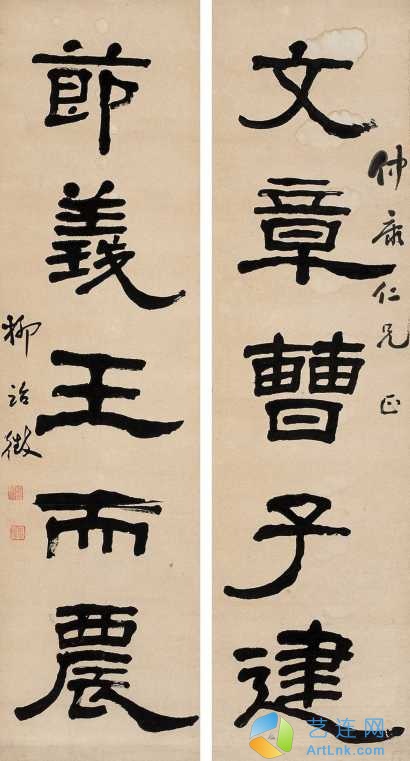 仲康仁兄正
文章曹子建
節義王而農
柳詒徵
艺连网
ArtLnk.com